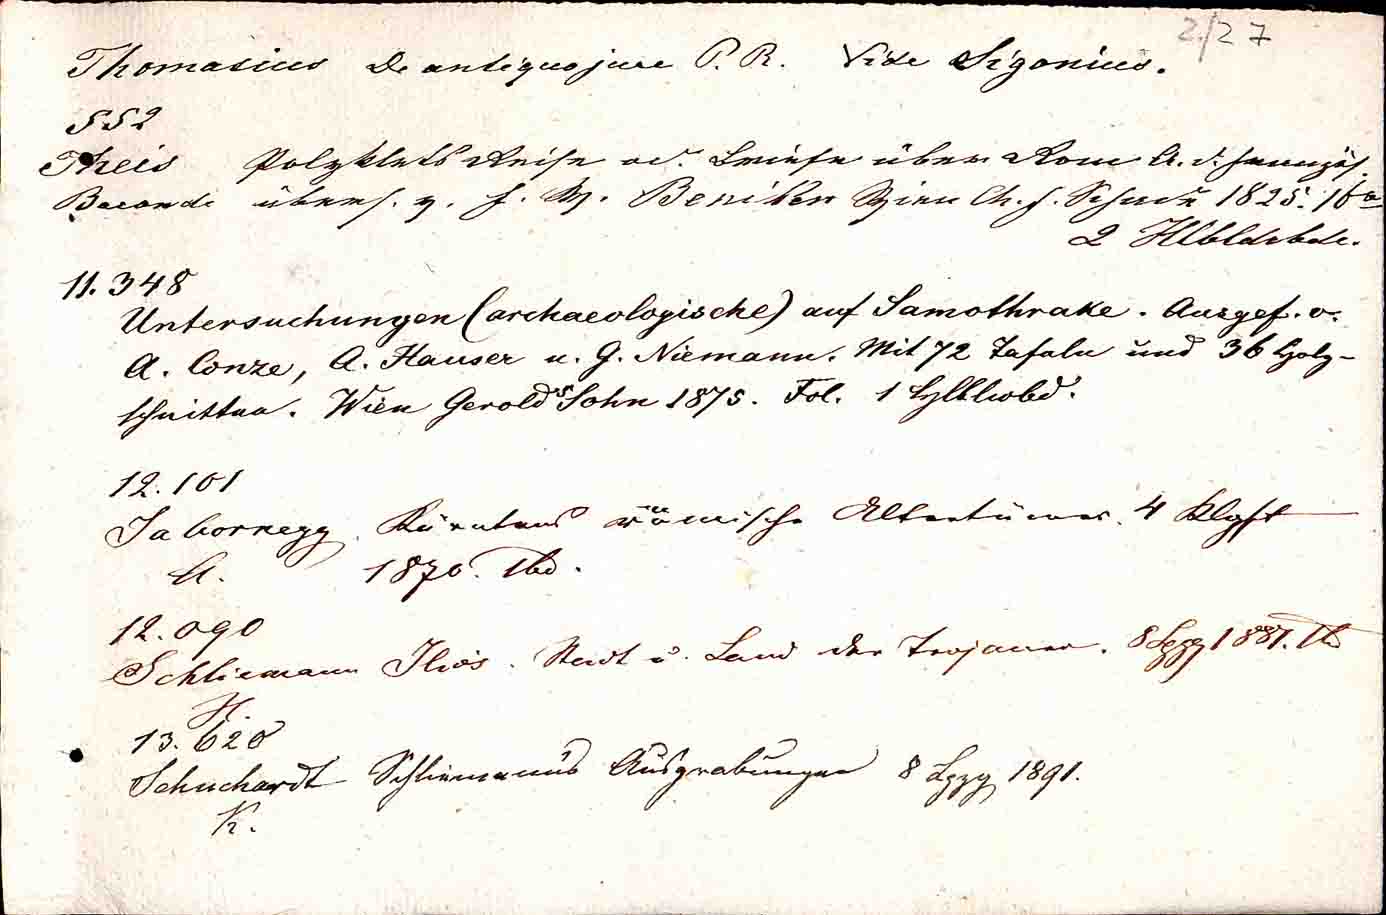 2./27
Thomasius De antiquo jure P. R. Vide Sigonius.
552
Theis Polyklets Reise od. Briefe über Rom A. d. französ.
Baron de übers. v. F. W. Wien Ch. F. Schade 1825. 16°
2 Hlbldrbde.
11.348
Untersuchungen (archaeologische) auf Samothrake. Ausgef. v.
A. Conze, A. Hauser u. G. Niemann. Mit 72 Tafeln und 36 Holz-
schnitten. Wien Gerolds Sohn 1875. Fol. 1 Hlblwbd.
12.101
Jabornegg Kärntens römische Altertümer. 4 Klgft
A. 1870. 1bd.
12.090
Schliemann Ilios. Stadt u. Land der Trojaner. 8 Lpzg 1881. 1b
H.
13.628
Schuchardt Schliemann's Ausgrabungen 8 Lpzg 1891.
K.